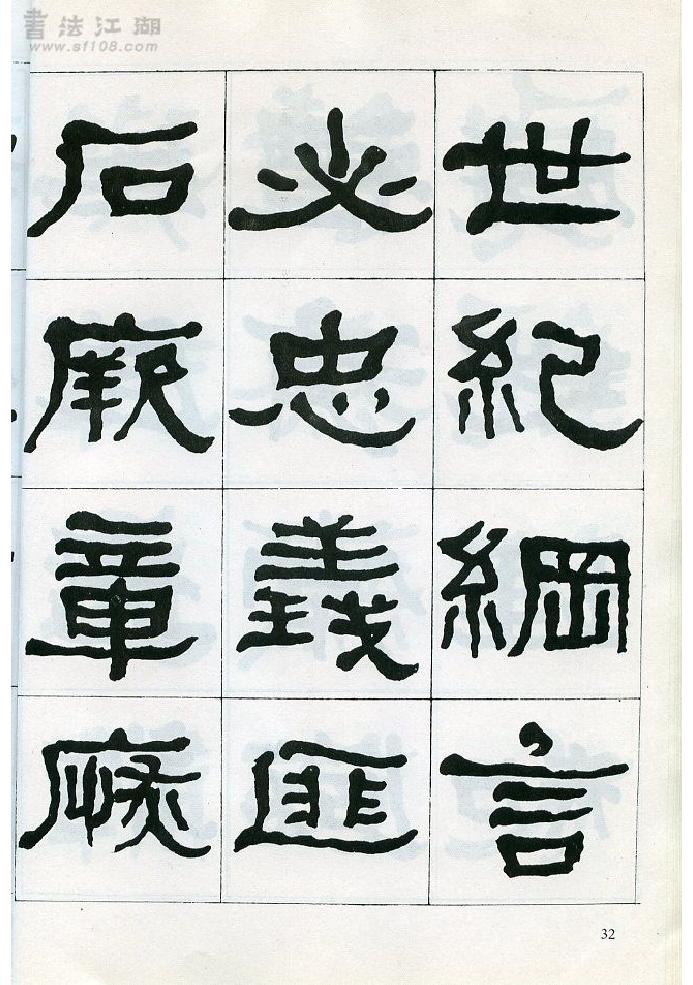 書法江湖
www.sf108.com
世紀綱言
必忠義匪
石厥章
32